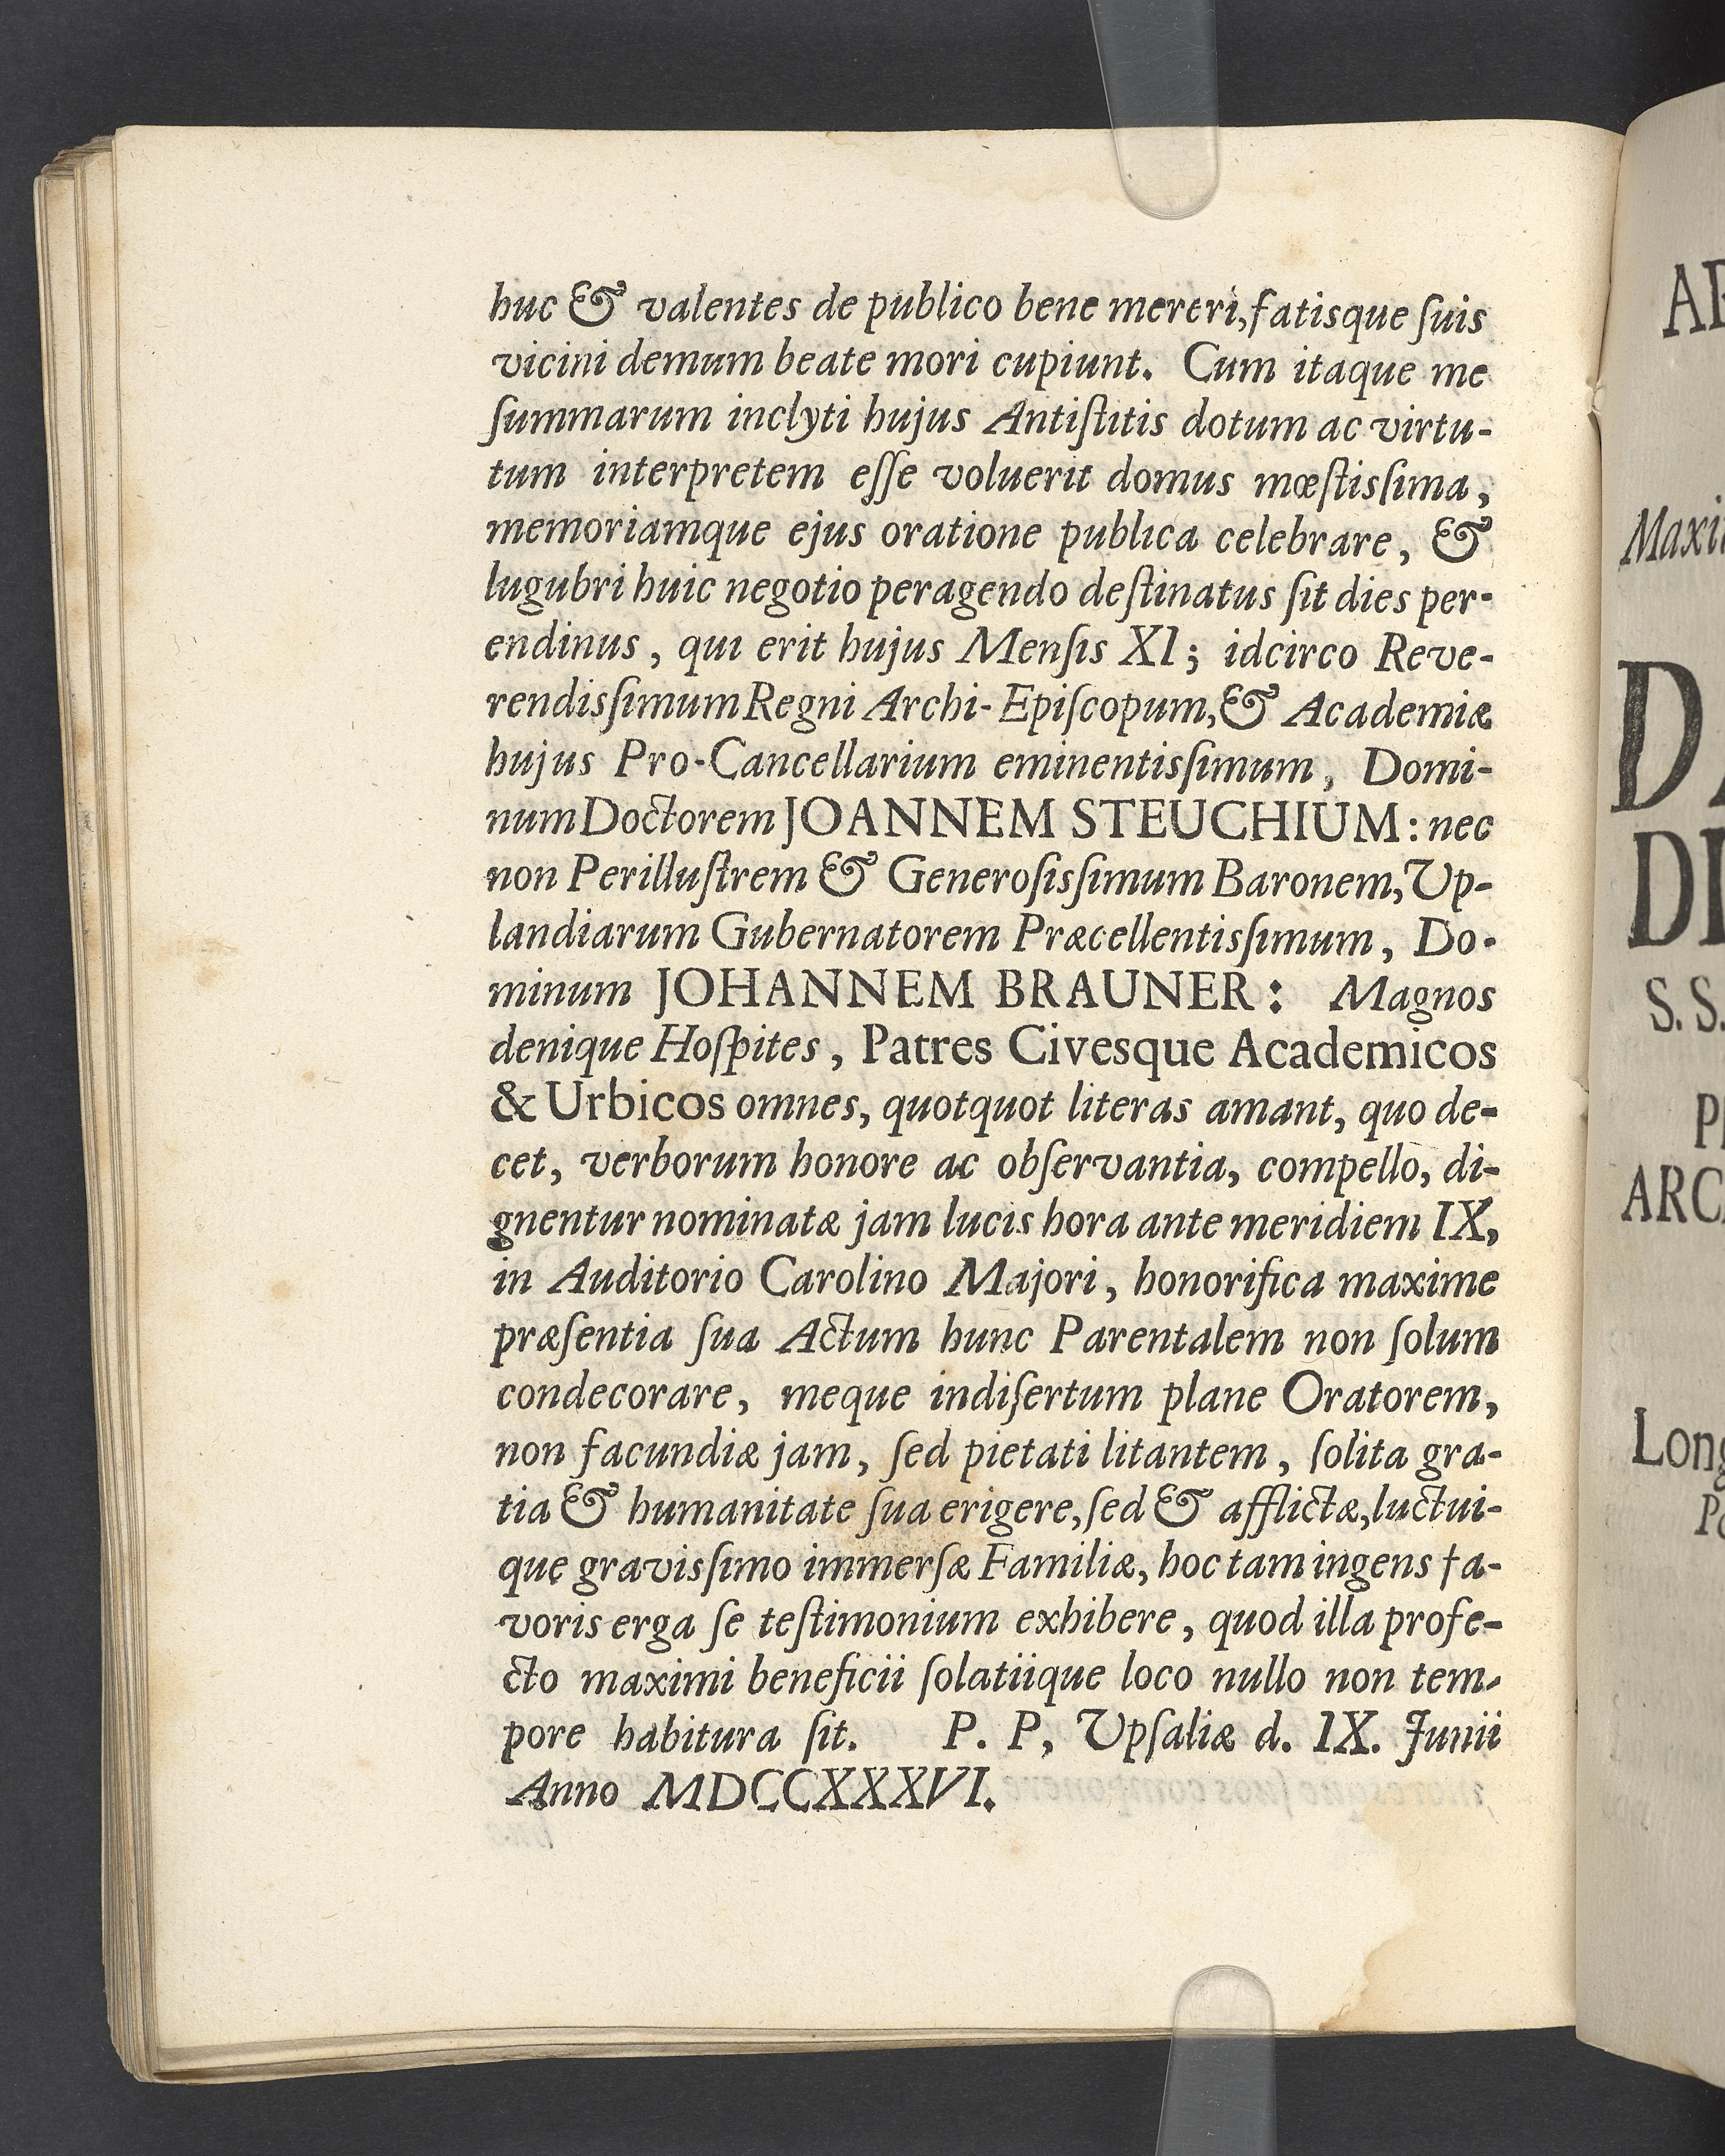 huc & valentes de publico bene mereri, fatisque ſuis
vicini demum beate mori cupiunt. Cum itaque me
ſummarum inclyti hujus Antiſtitis dotum ac virtu-
tum interpretem eſſe voluerit domus mœſtisſima,
memoriamque ejus oratione publica celebrare, &
lugubri huic negotio peragendo deſtinatus ſit dies per-
endinus, qui erit hujus Menſis XI; idcirco Reve-
rendisſimum Regni Archi-Epiſcopum, & Academiæ
hujus Pro-Cancellarium eminentisſimum, Domi-
num Doctorem JOANNEM STEUCHIUM: nec
non Perilluſtrem & Generoſisſimum Baronem, Up-
landiarum Gubernatorem Præcellentisſimum, Do-
minum JOHANNEM BRAUNER: Magnos
denique Hoſpites, Patres Civesque Academicos
& Urbicos omnes, quotquot literas amant, quo de-
cet, verborum honore ac obſervantia, compello, di-
gnentur nominatæ jam lucis hora ante meridiem IX,
in Auditorio Carolino Majori, honorifica maxime
præſentia ſua Actum hunc Parentalem non ſolum
condecorare, meque indiſertum plane Oratorem,
non facundiæ jam, ſed pietati litantem, ſolita gra-
tia & humanitate ſua erigere, ſed & afflictæ, luctui-
que gravisſimo immerſæ Familiæ, hoc tam ingens fa-
voris erga ſe teſtimonium exhibere, quod illa profe-
cto maximi beneficii ſolatiique loco nullo non tem-
pore habitura ſit. P. P, Upſaliæ d. IX. Junii
Anno MDCCXXXVI.
S. S.